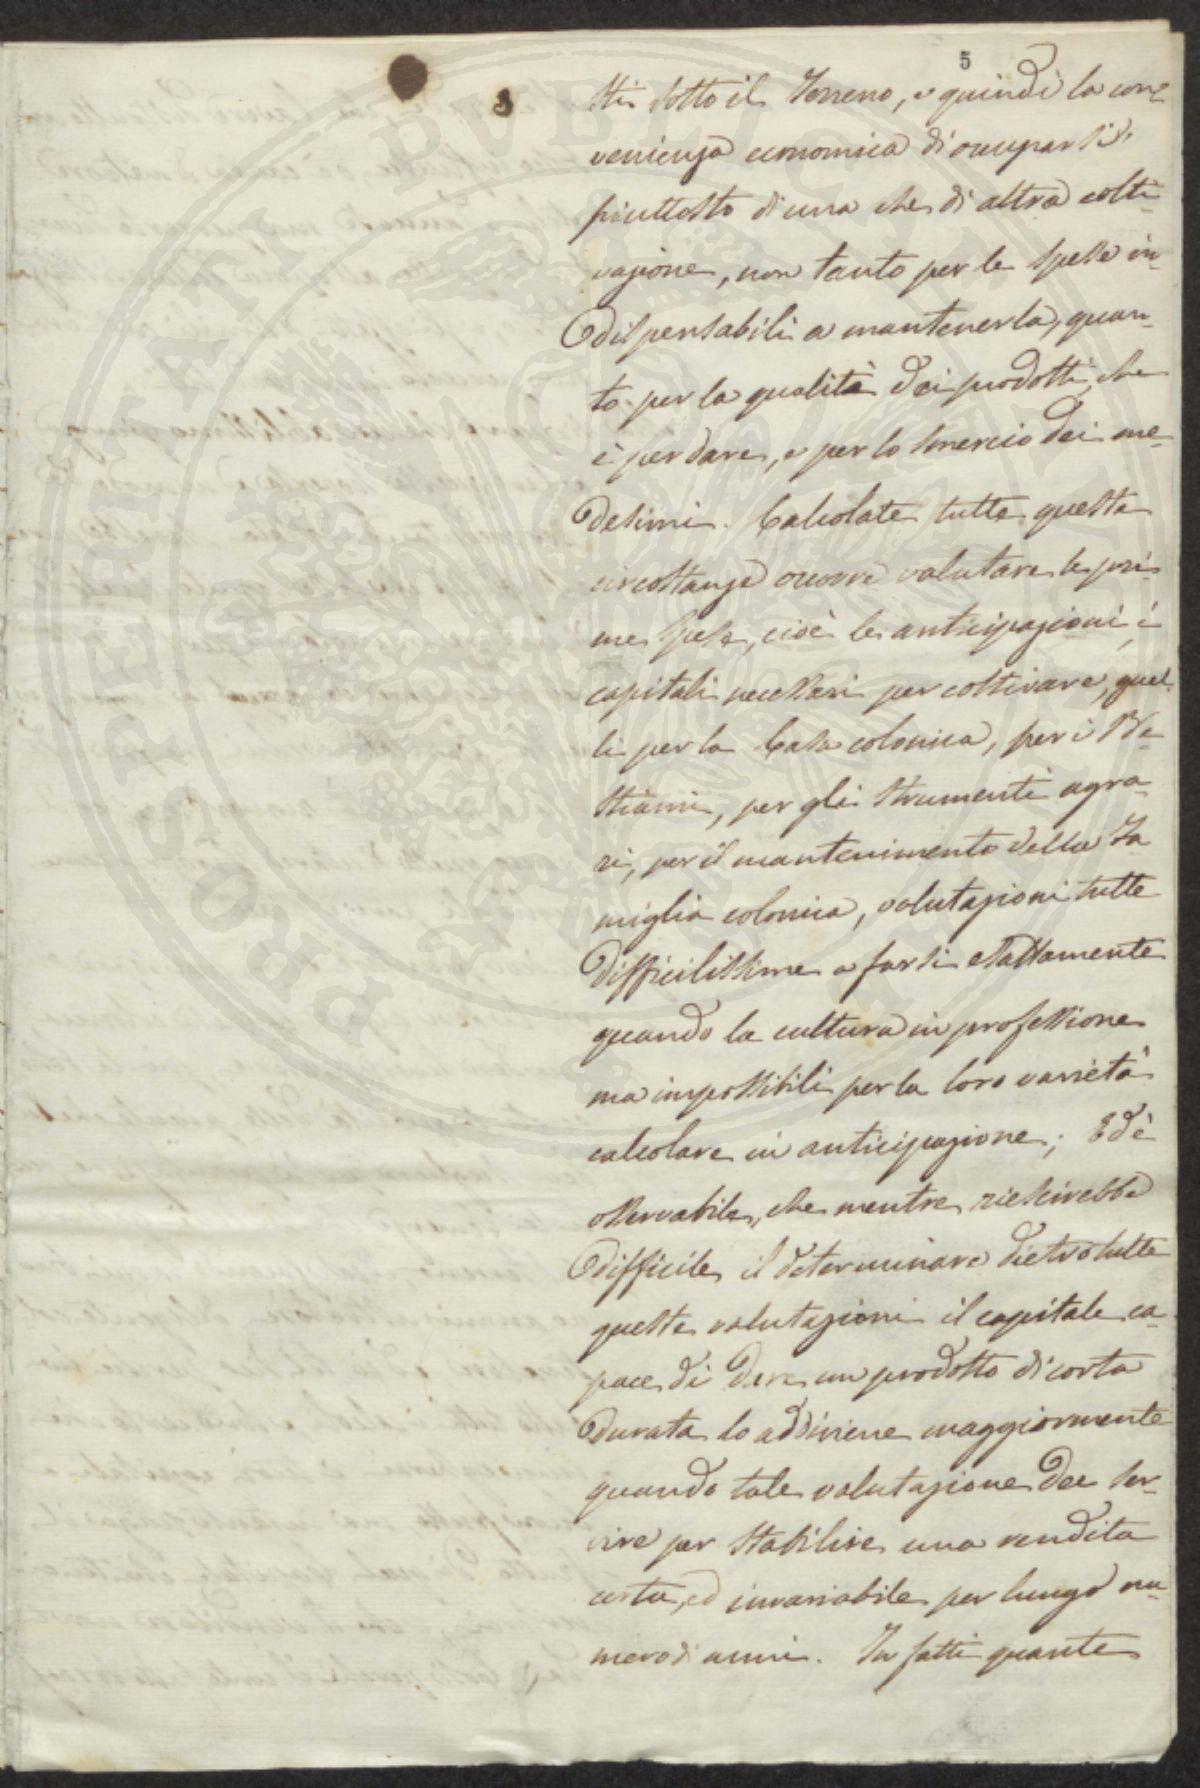 5
3
sti sotto il Terreno, e quindi la con=
venienza economica di occuparsi
piuttosto di una che di altra colti-
vazione, non tanto per le spese in-
dispensabili a mantenerla, quan-
to per la qualità dei prodotti, che
è per dare, e per lo smercio dei me-
desimi. Calcolate tutte queste
circostanze occorre valutare le pri-
me spese, cioè le anticipazioni, i
capitali necessari per coltivare, quel-
li per la Casa colonica, per i Be-
stiami, per gli strumenti agra-
ri, per il mantenimento della Fa
miglia colonica, valutazioni tutte
difficilissime a farsi esattamente
quando la cultura in professione
ma impossibili per la loro varietà
calcolare in anticipazione; Ed è
osservabile, che mentre riescirebbe
difficile il determinare dietro tutte
queste valutazioni il capitale ca-
pace di dare un prodotto di corta
durata lo addiviene maggiormente
quando tale valutazione dee ser-
vire per stabilire una rendita
certa, ed invariabile per lungo nu-
mero di anni. In fatti quante
PROSPERITATI PUBLICAE